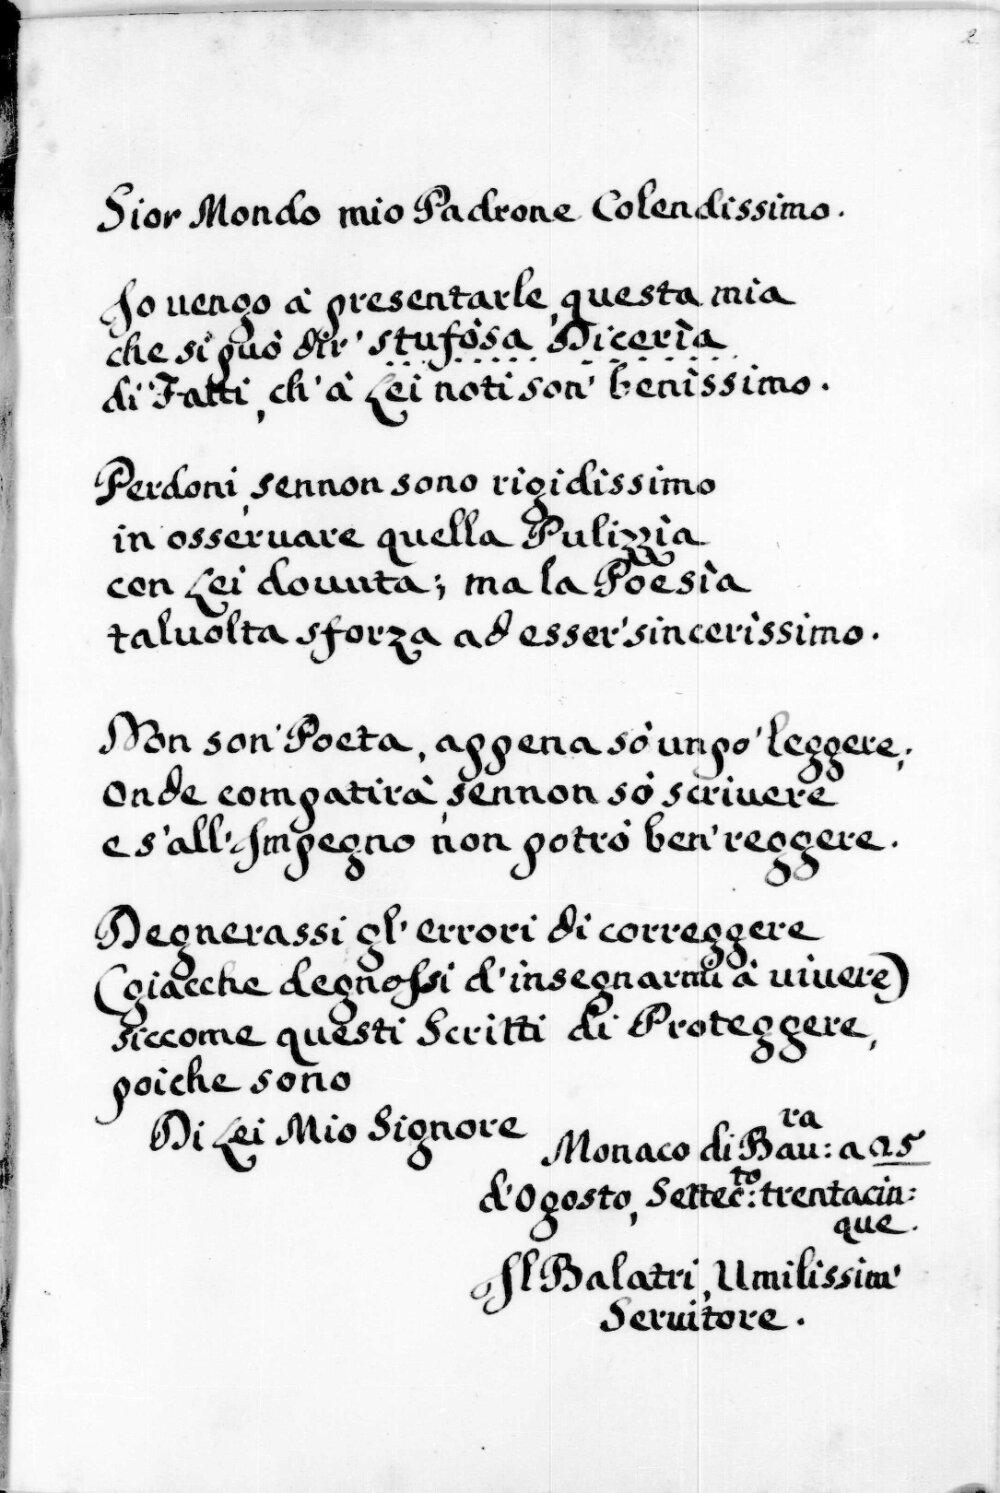 2
Sior Mondo mio Padrone Colendissimo.
Io uengo à presentarle, questa mia
che si può dir' stufòsa Dicerìa
di Fatti, ch' à Lei noti son' benìssimo.
Perdoni, sennon sono rigidissimo
in osseruare quella Pulizzìa
con Lei douuta; ma la Poesìa
taluolta sforza ad esser' sincerìssimo.
Non son' Poeta, appena sò un po' leggere,
onde compatirà, sennon sò scriuere
e s' all' Impegno non potrò ben' reggere.
Degnerassi gl' errori di correggere
(giacche degnossi d' insegnarmi à uiuere)
siccome questi Scritti di Proteggere,
poiche sono
Di Lei Mio Signore
Monaco di Bau:ra a 25
d' Ogosto, Settec:to trentacin:
que.
Il Balatri, Umilissim'
Seruitore.